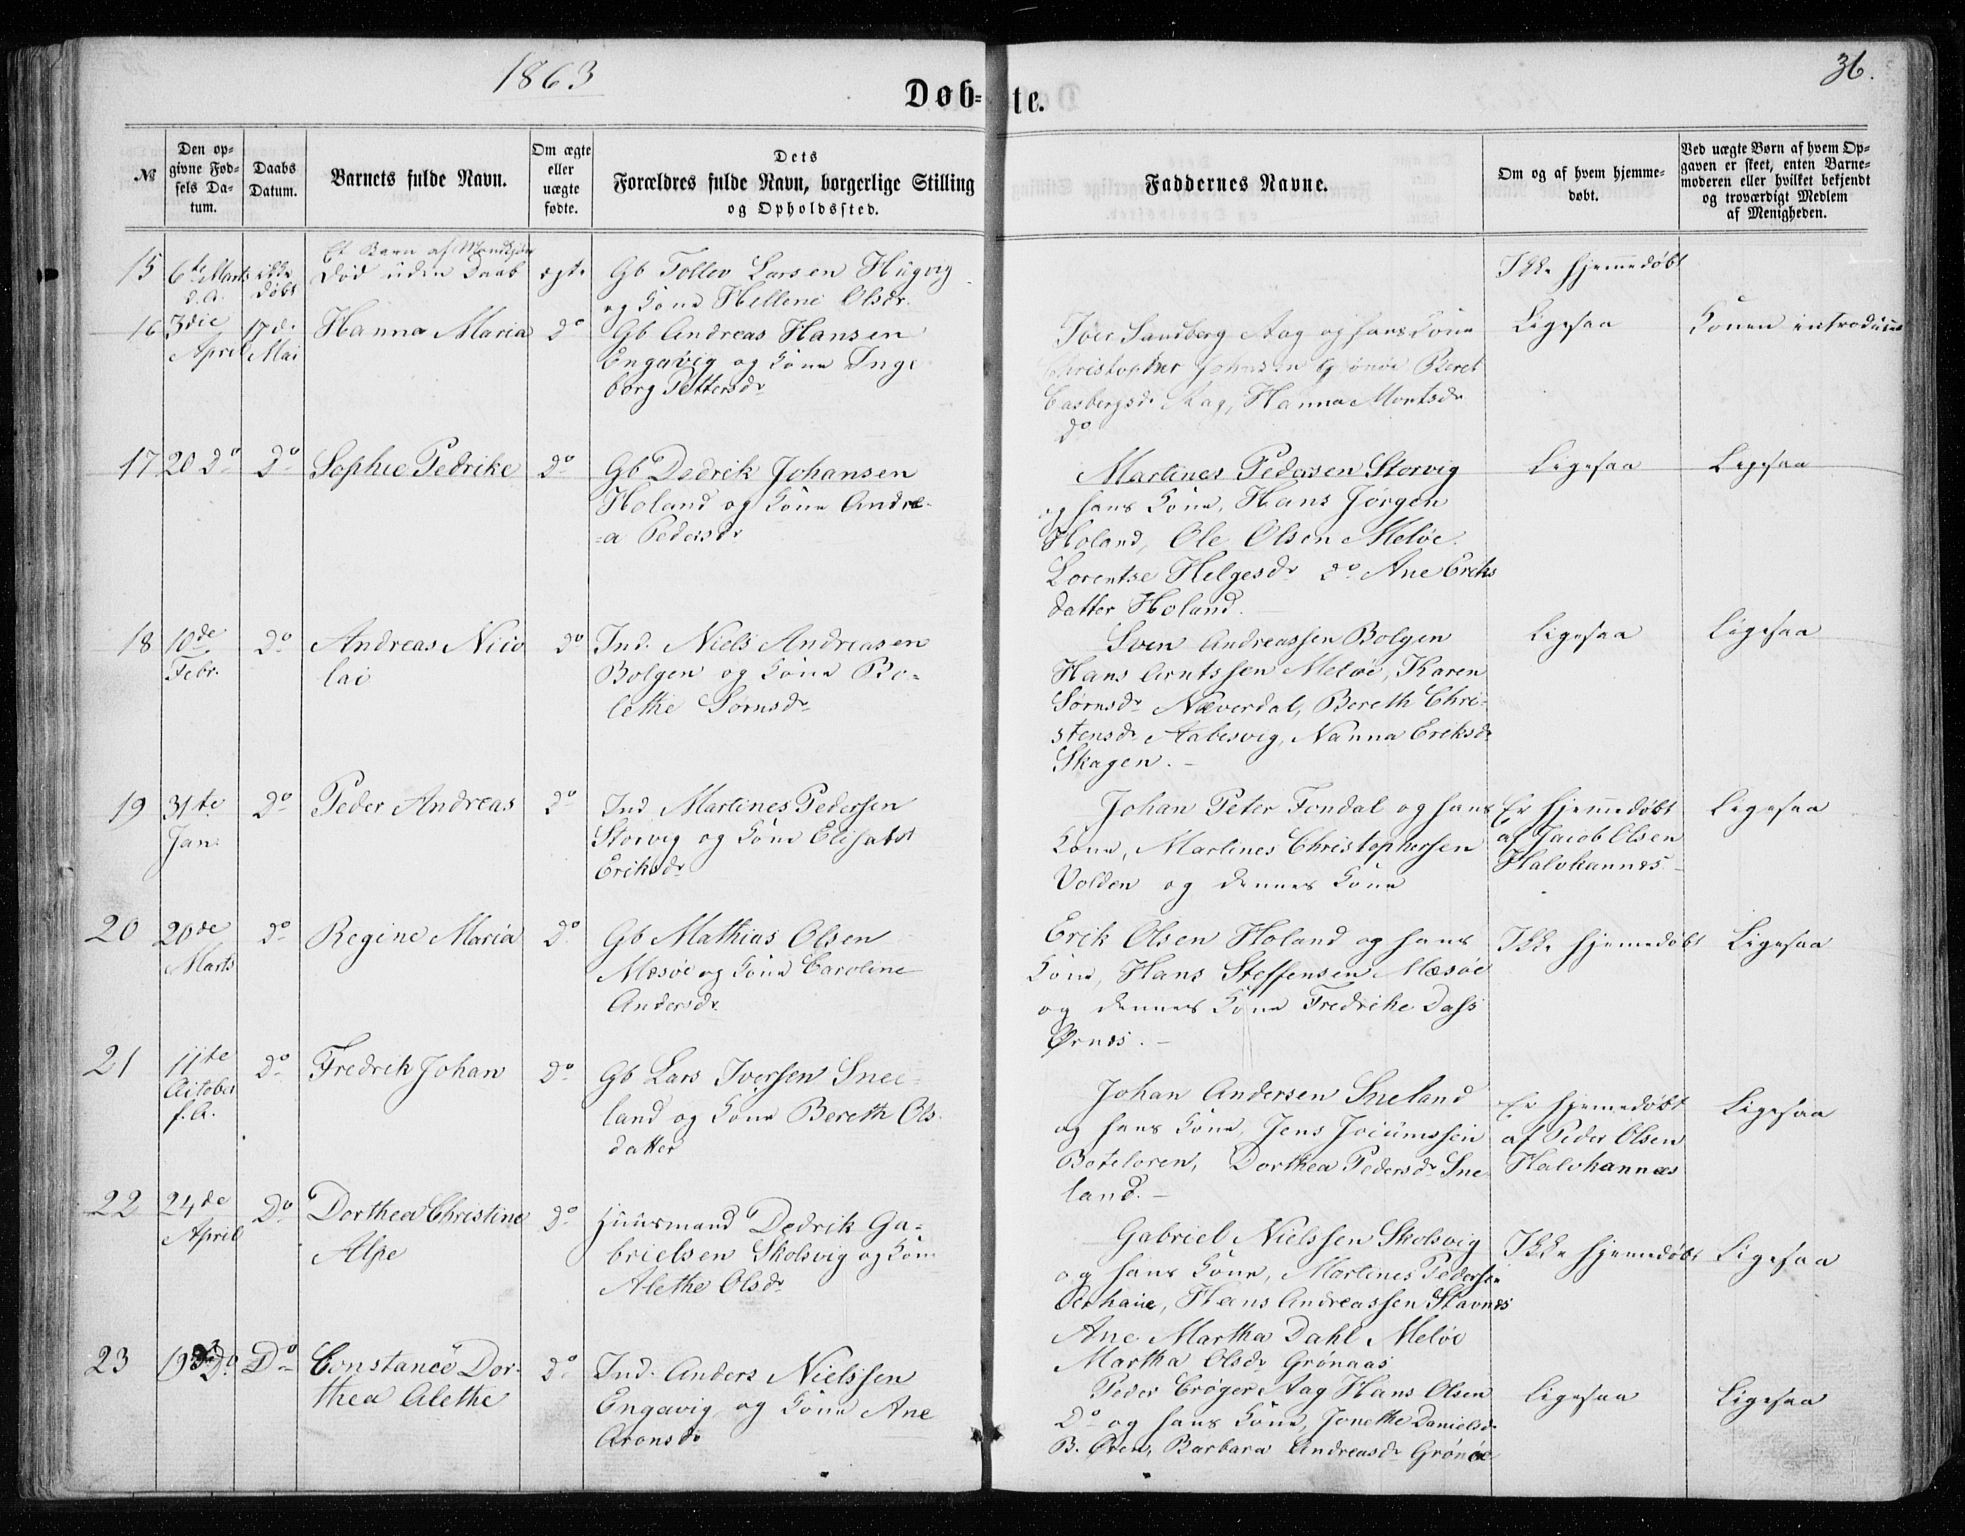 1863
36.
Døb-te.
№
Den opgivne Fødsels Datum.
Daabs Datum.
Barnets fulde Navn.
Om ægte eller uægte fødte.
Dets Forældres fulde Navn, borgerlige Stilling og Opholdssted.
Faddernes Navne.
Om og af hvem hjemmedøbt.
Ved uægte Børn af hvem Opgaven er skeet, enten Barnemoderen eller hvilket bekjendt og troværdigt Medlem af Menigheden.
15
6te Marts
d. A.
Ikke
døbt
Et Barn af Mandkjøn
død uden Daab
egte
Gb Tollev Larsen Hugvig
og Kone Hellene Olsdr
Ikke hjemmedøbt
16
3die
April
17de
Mai
Hanna Maria
Do
Gb Andreas Hansen
Engavig og Kone Inge
borg Pettersdr
Iver Sandberg Aag og hans Kone
Christopher Johnsen Grønøe Beret
Casbergsdr Aag, Hanna Mortsdr
Do
Ligesaa
Konen introduceret
17
20 Do
Do
Sophie Pedrike
Do
Gb Dedrik Johansen
Holand og Kone Andre-
=a Pedersdr
Martines Pedersen Storvig
og hans Kone, Hans Jørgen
Holand, Ole Olsen Meløe.
Lorentse Helgesdr Do Ane Eriks
datter Holand.
Ligesaa
Ligesaa
18
10de
Febr.
Do
Andreas Nico
lai
Do
Ind. Niels Andreasen
Bolgen og Kone Bo-
lethe Sørnsdr
Sven Andreassen Bolgen
Hans Arntssen Meløe, Karen
Sørnsdr Næverdal, Bereth Chri-
stensdr Aabesvig, Nanna Eriksdr
Skagen. -
Ligesaa
Ligesaa
19
31te
Jan.
Do
Peder Andreas
Do
Ind Martines Pedersen
Storvig og Kone Elisabet
Eriksdr
Johan Peter Fondal og hans
Kone, Martines Christophersen
Volden og dennes Kone
Er hjemmedøbt
af Jacob Olsen
Halvhannes
Ligesaa
20
20de
Marts
Do
Regine Maria
Do
Gb Mathias Olsen
Mæsøe og Kone Caroline
Andersdr
Erik Olsen Holand og hans
Kone, Hans Steffensen Mæsøe
og dennes Kone Fredrike Dass
Ørnes. -
Ikke hjemedøbt
Ligesaa
21
11te
October
f. A.
Do
Fredrik Johan
Do
Gb Lars Iversen Snee-
land og Kone Bereth Ols
datter
Johan Andersen Sneland
og hans Kone, Jens Joiumssen
Boteloren, Dorthea Pedersdr Sne
land. -
Er hjemedøbt
af Peder Olsen
Halvhannæs
Ligesaa
22
24de
April
Do
Dorthea Christine
Alpe
Do
Huusmand Dedrik Ga-
brielsen Skolsvig og Kone
Alethe Olsdr
Gabriel Nielssen Skolsvig
og hans Kone, Martines Pedersen
Oerhaue, Hans Andreassen Stavnes
Ane Martha Dahl Meløe
Martha Olsdr Grønaas
Ikke hjemmedøbt
Ligesaa
23
19 Do
Do
Constance Dor-
thea Alethe
Do
Ind. Anders Nielssen
Engavig og Kone Ane
Aronsdr
Peder Crøger Aag Hans Olsen
Do og hans Kone, Jonethe Danielsdr
B. Øren, Barbara Andreasdr Grønøe
Ligesaa
Ligesaa